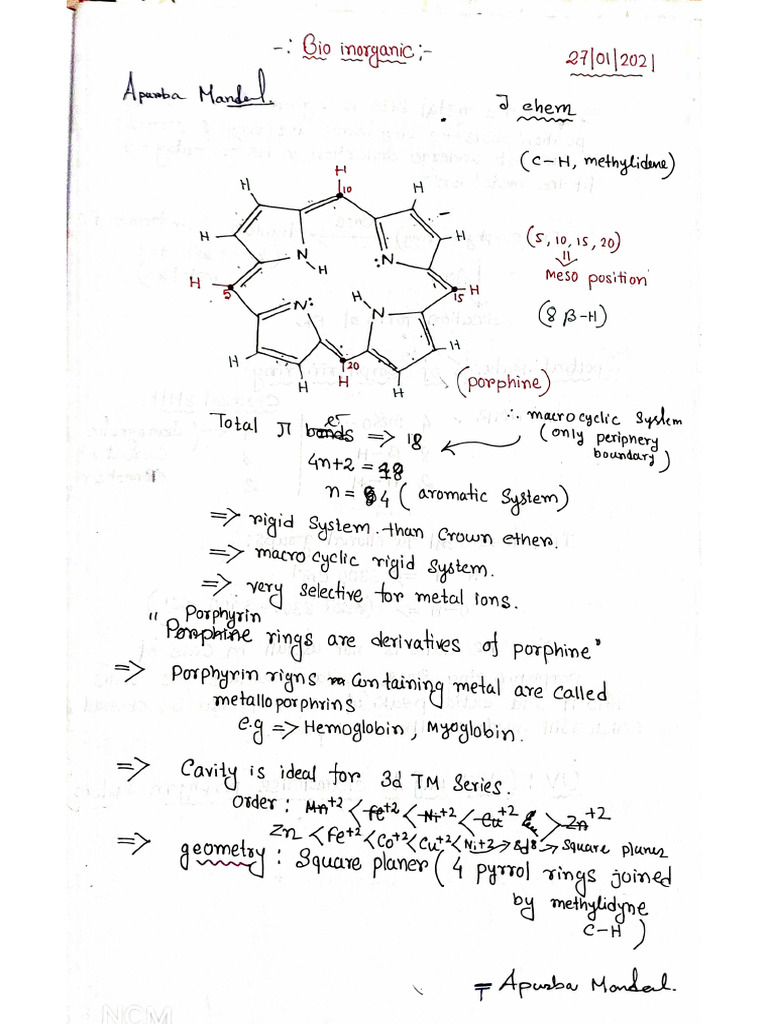 -: Bio inorganic :-
27/01/2021
Apurba Mandal.
J chem
(C-H, methylidene)
H
10
H
H
H
H
N
H
:N
(5, 10, 15, 20)
Meso position
H
5
N:
H
N
15
H
(8 β-H)
H
H
20
H
H
H
(porphine)
Total π bonds es => 18
∴ macrocyclic System
(only periphery
boundary)
4n+2 = 18
n = 4 (aromatic System)
=> rigid System than Crown ether.
=> macro cyclic rigid System.
=> very selective for metal ions.
" Porphyrin
Porphine rings are derivatives of porphine"
=> Porphyrin rigns containing metal are called
metalloporphrins
e.g => Hemoglobin, Myoglobin.
=> Cavity is ideal for 3d TM Series.
Order : Mn+2 < Fe+2 < Ni+2 < Cu+2 > Zn+2
Zn < Fe+2 < Co+2 < Cu+2 < Ni+2 -> 3d8 -> Square planer
=> geometry : Square planer ( 4 pyrrol rings joined
by methylidyne
C-H )
Apurba Mandal.
NCM